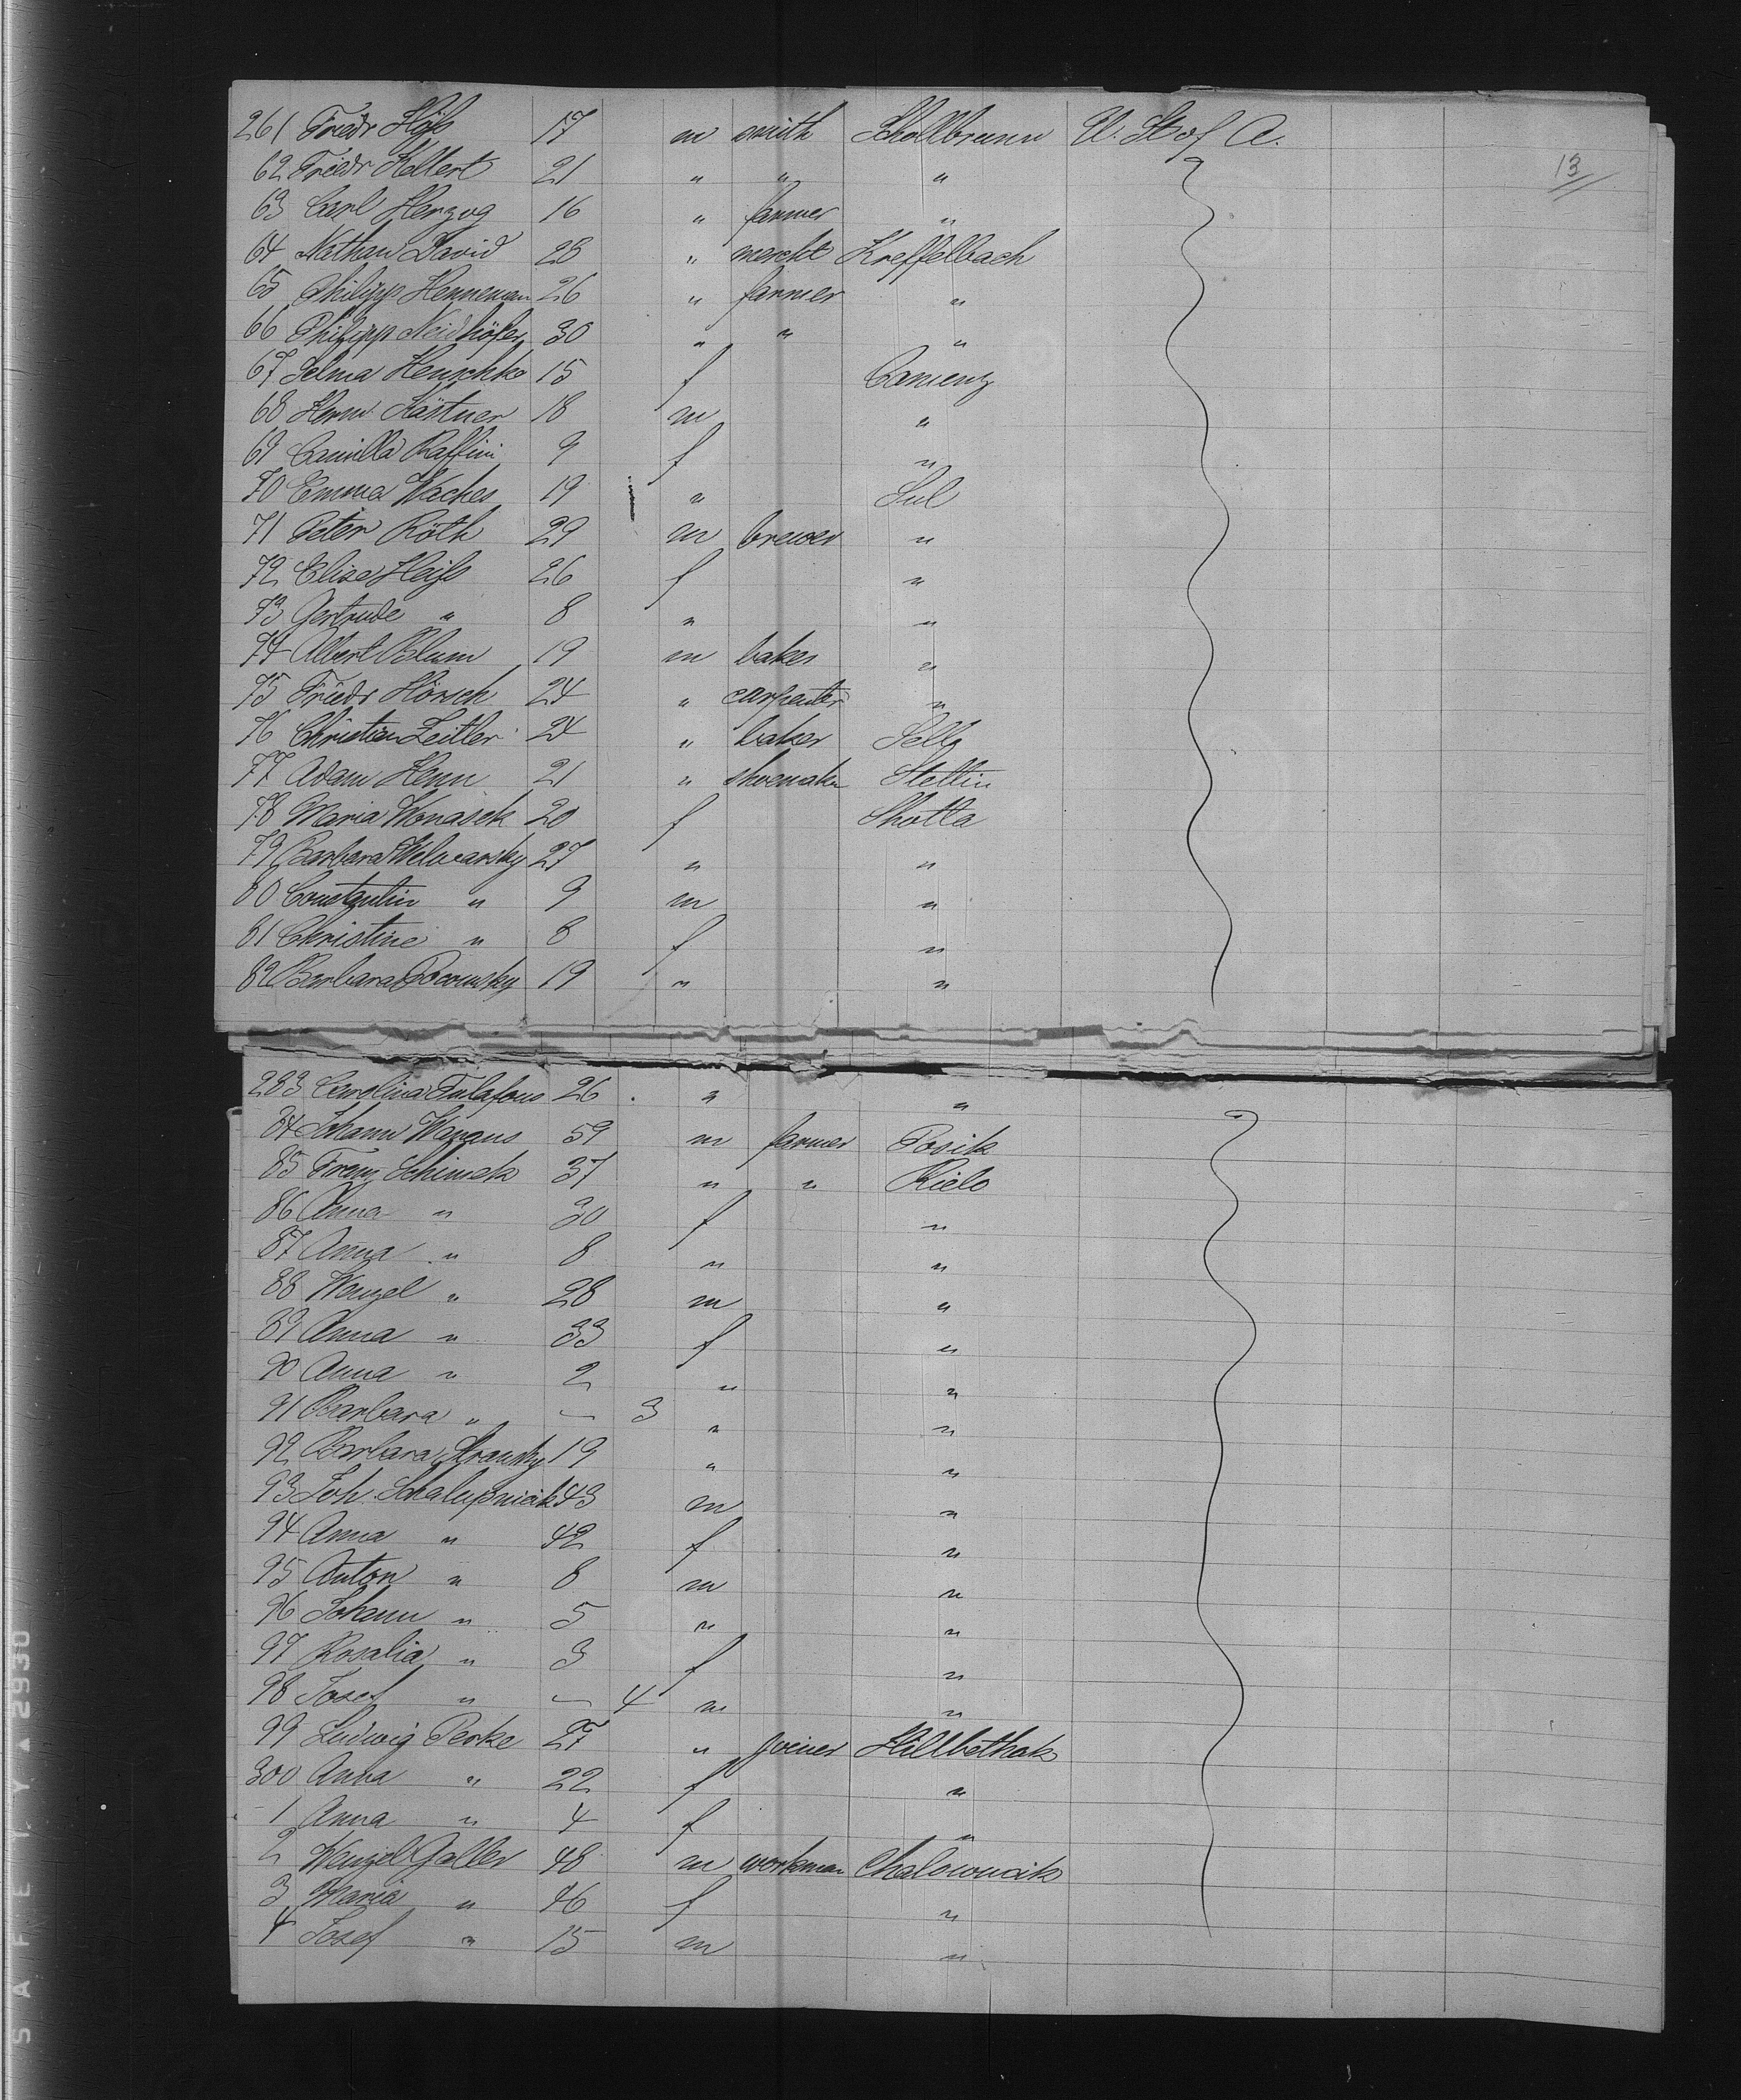 13
261 Friedr Höß 17 m smith Schollbrunn U. St of A.
62 Friedr Kellert 21 " " "
63 Carl Herzog 16 " farmer "
64 Nathan David 28 " mercht Kreffelbach
65 Philipp Henneman 26 " farmer "
66 Philipp Neidhöfer 30 " " "
67 Selma Henschke 15 f Camenz
68 Herm Kästner 18 m "
69 Camilla Raffini 9 f "
70 Emma Waches 19 " Sul
71 Peter Röth 29 m brewer "
72 Elise Heiß 26 f "
73 Gertrude " 8 " "
74 Albert Blum 19 m baker "
75 Friedr Hörsch 24 " carpenter "
76 Christian Zeitler 24 " baker Selb
77 Adam Henn 21 " shoemaker Stettin
78 Maria Wonasek 20 f Skotta
79 Barbara Welwarsky 27 " "
80 Constantin " 9 m "
81 Christine " 8 f "
82 Barbara 19 " "
283 Carolina Tulafous 26 " "
84 Johann Wanaus 59 m farmer Posik
85 Franz Schimek 37 " " Rielo
86 Anna " 30 f "
87 Anna " 8 " "
88 Wenzel " 28 m "
89 Anna " 33 f "
90 Anna " 2 " "
91 Barbara " - 3 " "
92 Barbara Stransky 19 " "
93 Joh. Schalupnicik 43 m "
94 Anna " 42 f "
95 Anton " 8 m "
96 Johann " 5 " "
97 Rosalia " 3 f "
98 Josef " - 4 m "
99 Ludwig Perke 27 " joiner Hillbethak
300 Anna " 22 f "
1 Anna " 4 f "
2 Wenzel Galler 48 m workman Chalowncik
3 Maria " 46 f "
4 Josef " 15 m "
SAFETY ▲ 2930